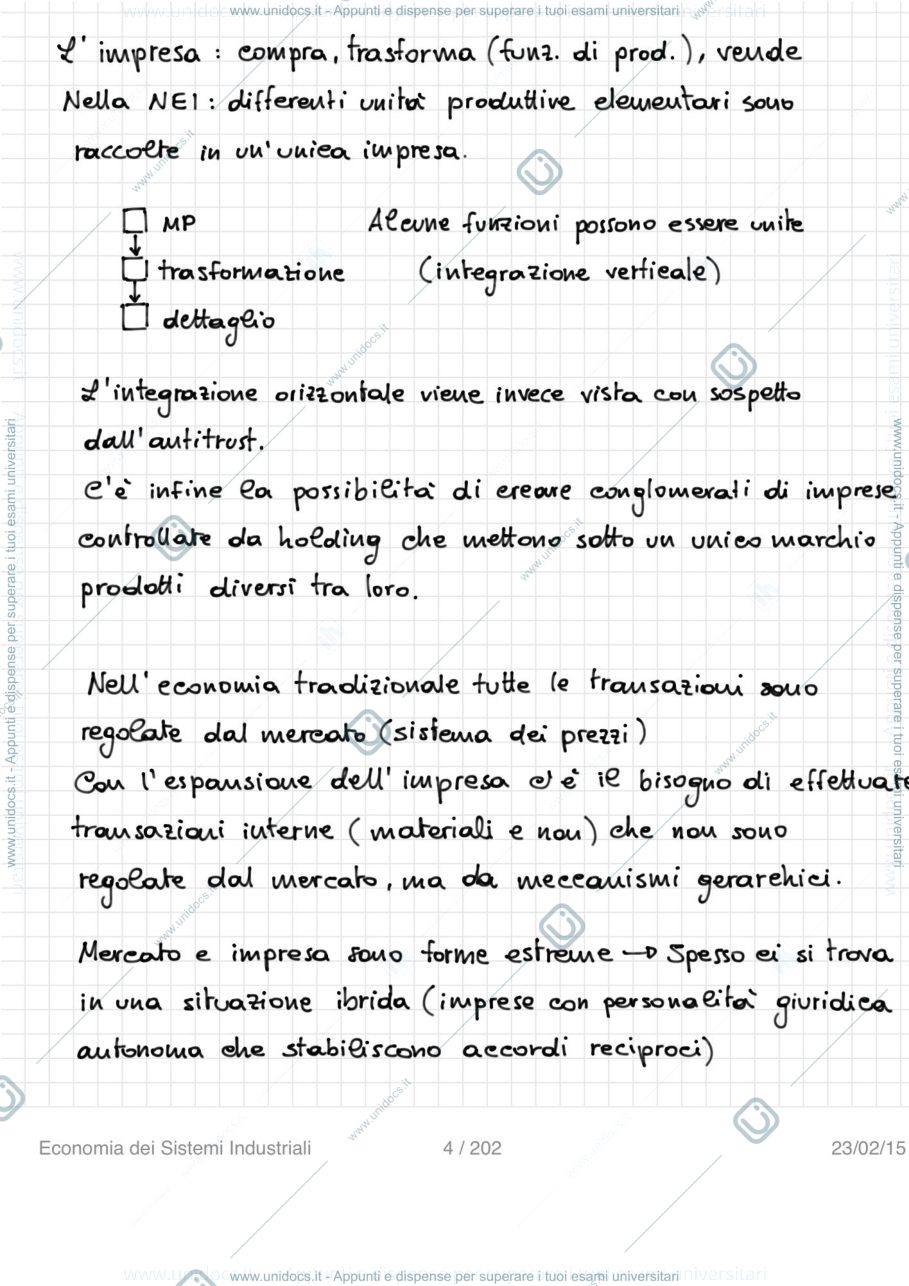 www.unidocs.it - Appunti e dispense per superare i tuoi esami universitari
L'impresa : compra, trasforma (funz. di prod.), vende
Nella NEI : differenti unità produttive elementari sono
raccolte in un'unica impresa.
MP
Alcune funzioni possono essere unite
trasformazione
(integrazione verticale)
dettaglio
L'integrazione orizzontale viene invece vista con sospetto
dall'antitrust.
C'è infine la possibilità di creare conglomerati di imprese
controllate da holding che mettono sotto un unico marchio
prodotti diversi tra loro.
Nell'economia tradizionale tutte le transazioni sono
regolate dal mercato (sistema dei prezzi)
Con l'espansione dell'impresa c'è il bisogno di effettuare
transazioni interne (materiali e non) che non sono
regolate dal mercato, ma da meccanismi gerarchici.
Mercato e impresa sono forme estreme → Spesso ci si trova
in una situazione ibrida (imprese con personalità giuridica
autonoma che stabiliscono accordi reciproci)
Economia dei Sistemi Industriali 4 / 202 23/02/15
www.unidocs.it - Appunti e dispense per superare i tuoi esami universitari
www.unidocs.it - Appunti e dispense per superare i tuoi esami universitari
www.unidocs.it - Appunti e dispense per superare i tuoi esami universitari
www.unidocs.it
www.unidocs.it
www.unidocs.it
www.unidocs.it
www.unidocs.it
www.unidocs.it